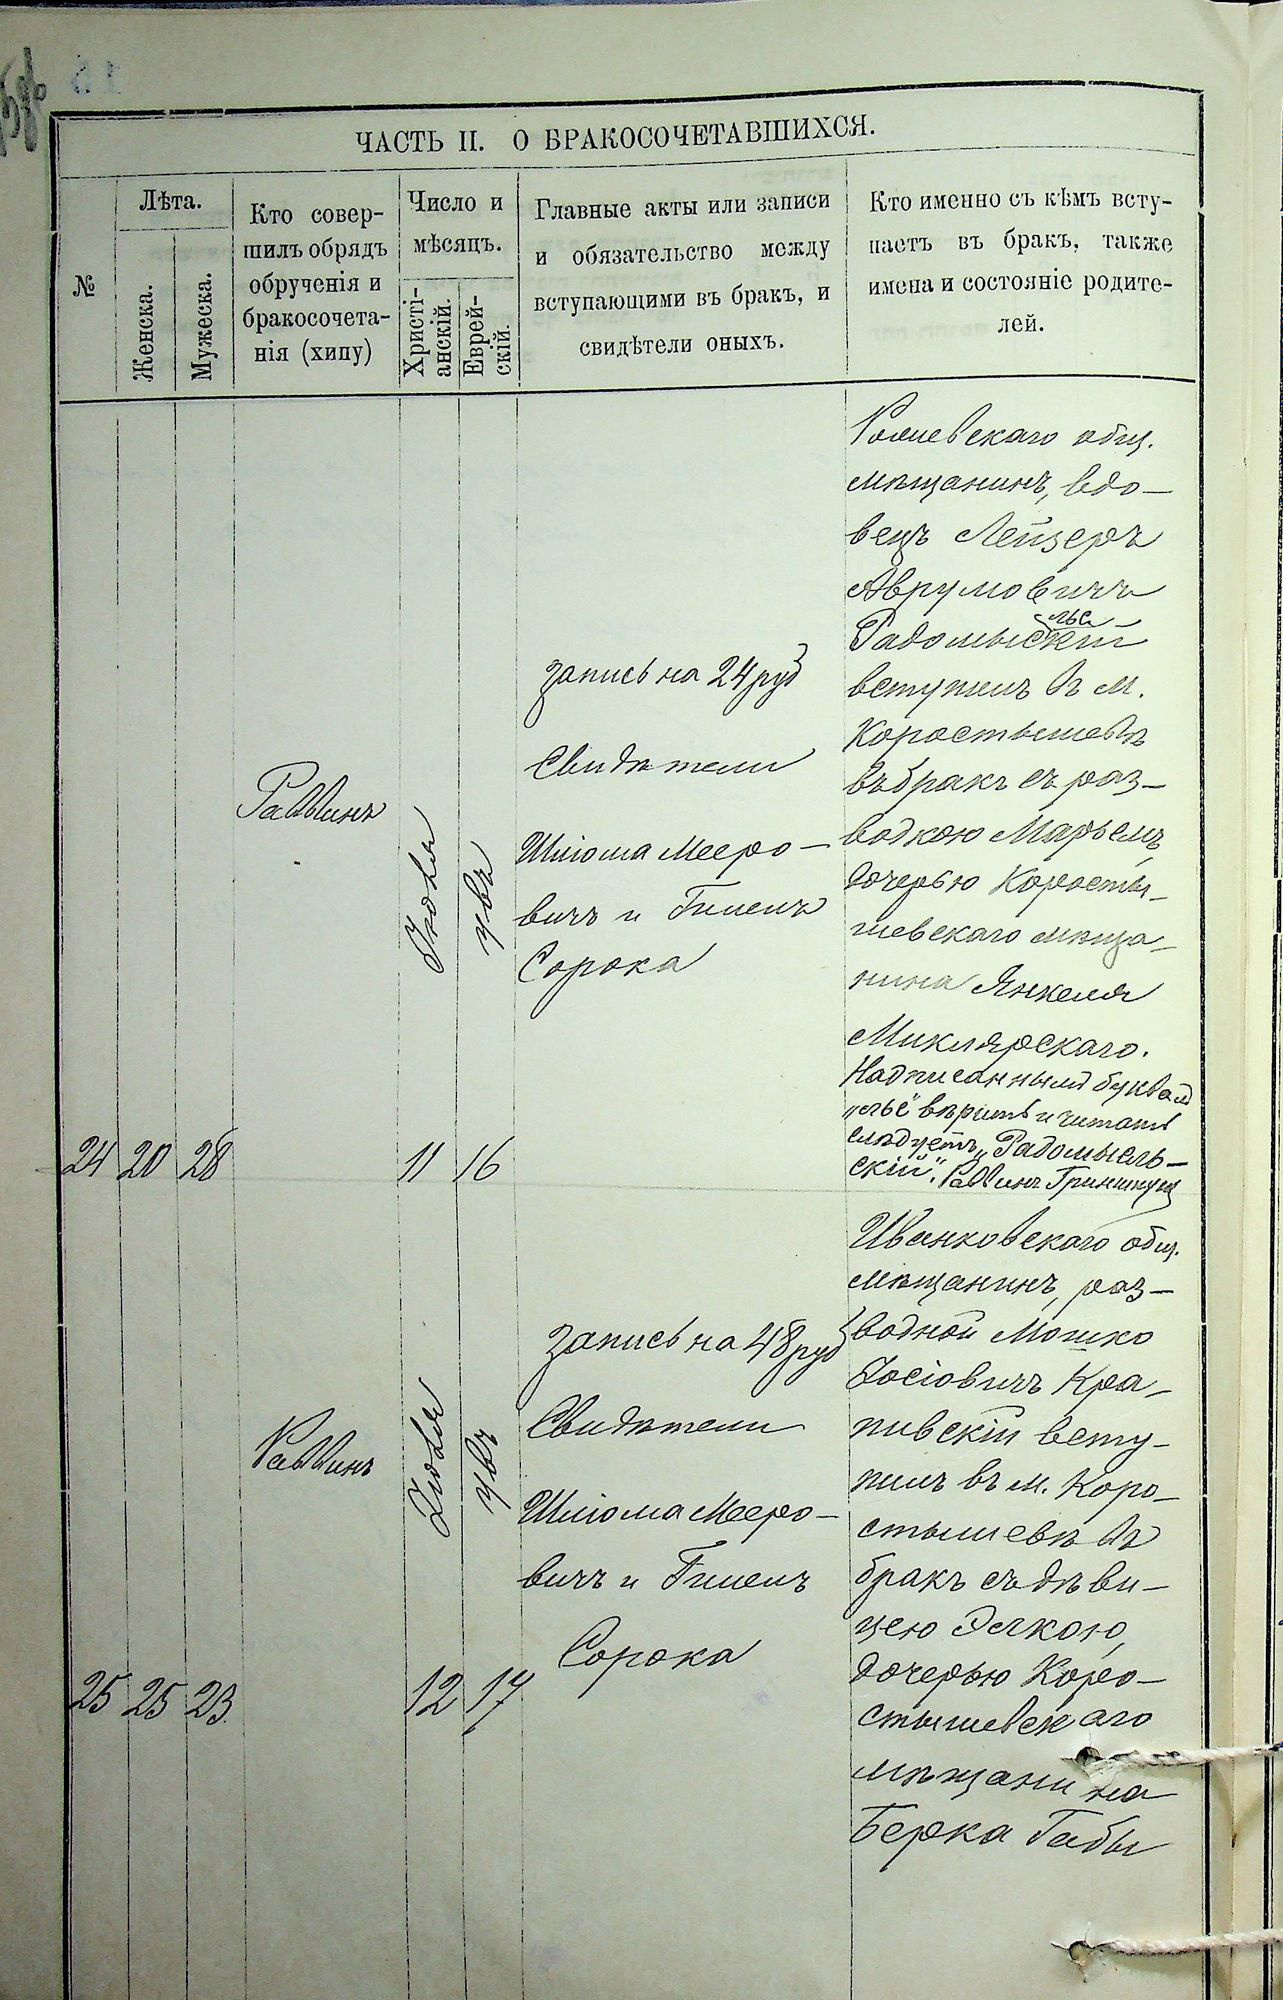 ЧАСТЬ II. О БРАКОСОЧЕТАВШИХСЯ.
№
Лѣта.
Женска.
Мужеска.
Кто совер-
шилъ обрядъ
обрученія и
бракосочета-
нія (хипу)
Число и
мѣсяцъ.
Христі-
анскій.
Еврей-
скій.
Главные акты или записи
и обязательство между
вступающими въ бракъ, и
свидѣтели оныхъ.
Кто именно съ кѣмъ всту-
паетъ въ бракъ, также
имена и состояніе родите-
лей.
24 20 28
Раввинъ
Іюля
11
16
запись на 24 руб
Свидѣтели
Шліома Мееро-
вичъ и Гилелъ
Сорока
общ.
мѣщанинъ, вдо-
вецъ Лейзеръ
Аврумовичъ
льс
Радомыскій
вступилъ въ м.
Коростышевѣ
въ бракъ съ раз-
водкою Марьемъ,
дочерью Косты-
шевскаго мѣща-
нина Янкеля
Миклярскаго.
Надписаннымъ буквамъ
„льс" вѣрить и читать
слѣдуетъ „Радомысль-
скій". Раввинъ
25 25 23
Раввинъ
Іюля
12
17
запись на 48 руб
Свидѣтели
Шліома Мееро-
вичъ и Гилелъ
Сорока
Иванковскаго общ.
мѣщанинъ, раз-
водной Мошко
Іосіовичъ Кра-
пивскій всту-
пилъ въ м. Коро-
стышевѣ въ
бракъ съ дѣви-
цею Элкою,
дочерью Коро-
стышевскаго
мѣщанина
Берка Габы